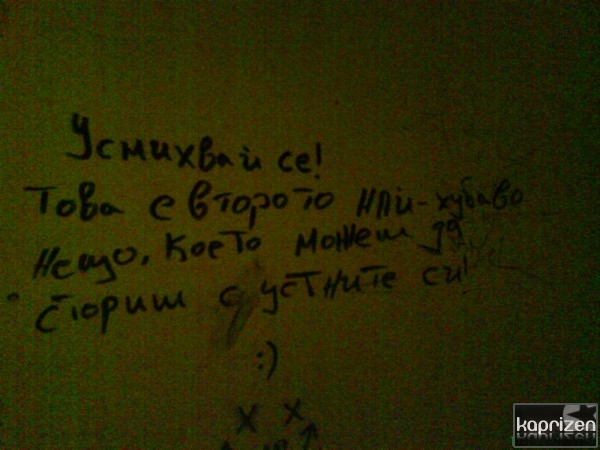 Усмихвай се!
Това е второто най-хубаво
нещо, което можеш да
сториш с устните си!
:)
X X
kaprizen